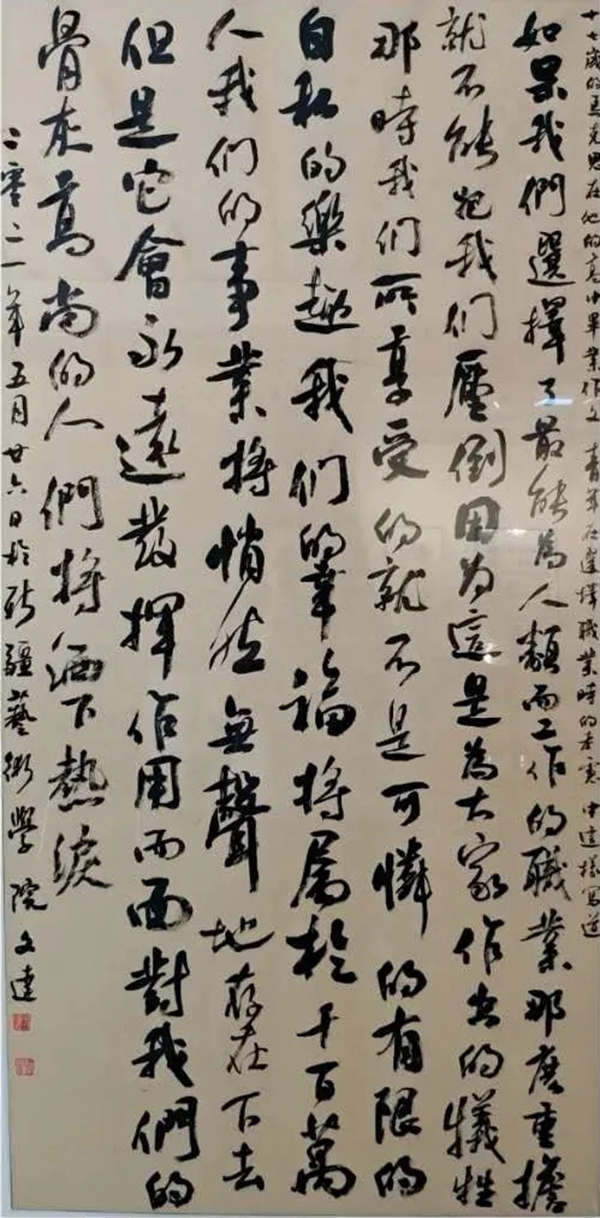 十七歲的馬克思在他的高中畢業作文青年在選擇職業時的考慮中這樣寫道
如果我們選擇了最能為人類而工作的職業那麼重擔
就不能把我们壓倒因为這是為大家作出的犧牲
那時我们所享受的就不是可憐的有限的
自私的樂趣我们的幸福將屬於千百萬
人我们的事業將悄然無聲地存在下去
但是它會永遠發揮作用而面對我們的
骨灰高尚的人們將洒下熱淚
二零二一年五月廿六日於新疆藝術學院文